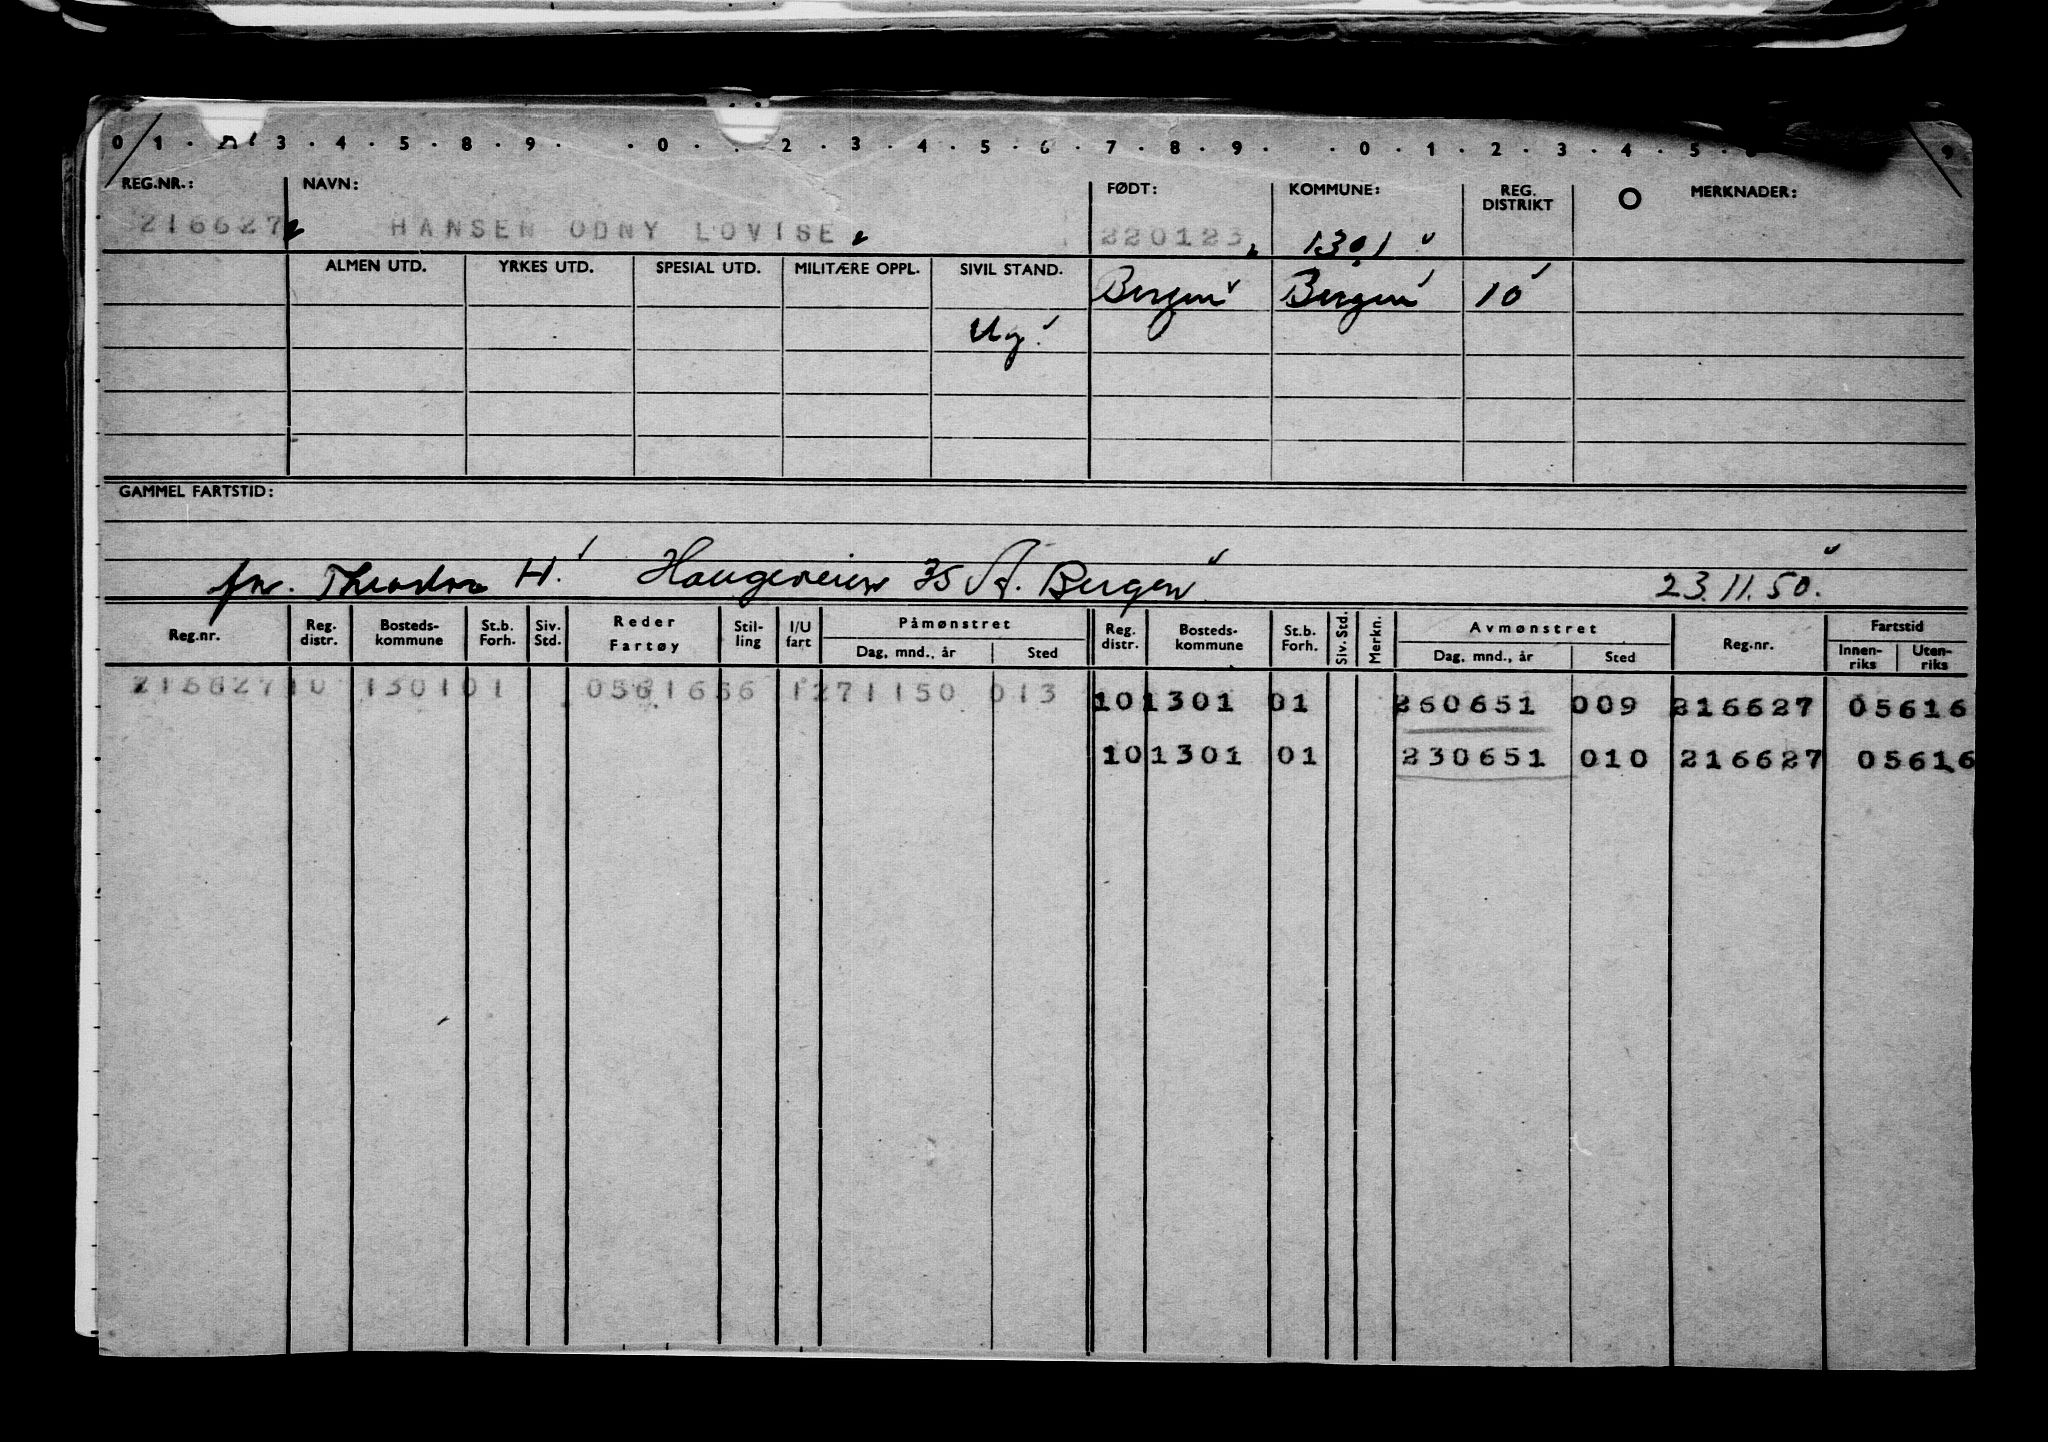 0 1 . 2 3 . 4 . 5 . 8 . 9 . . 0 . . 2 . 3 . 4 . 5 . 6 . 7 . 8 . 9 . . 0 . 1 . 2 . 3 . 4 . 5 9
REG.NR.: NAVN: FØDT: KOMMUNE: REG. DISTRIKT MERKNADER:
216627 HANSEN ODNY LOVISE 220123 1301
ALMEN UTD. YRKES UTD. SPESIAL UTD. MILITÆRE OPPL. SIVIL STAND. Bergen Bergen 10
Ug.
GAMMEL FARTSTID:
Theodor H. Haugeveien 35 A. Bergen 23.11.50.
Reg.nr. Reg. distr. Bosteds-kommune St.b. Forh. Siv. Std. Reder Fartøy Stil-ling I/U fart Påmønstret Dag, mnd., år Sted Reg. distr. Bosteds-kommune St.b. Forh. Siv. Std. Merkn. Avmønstret Dag, mnd., år Sted Reg.nr. Fartstid Innen-riks Uten-riks
216627 10 1301 01 05616 56 1 271150 013 10 1301 01 260651 009 216627 05616
10 1301 01 230651 010 216627 05616